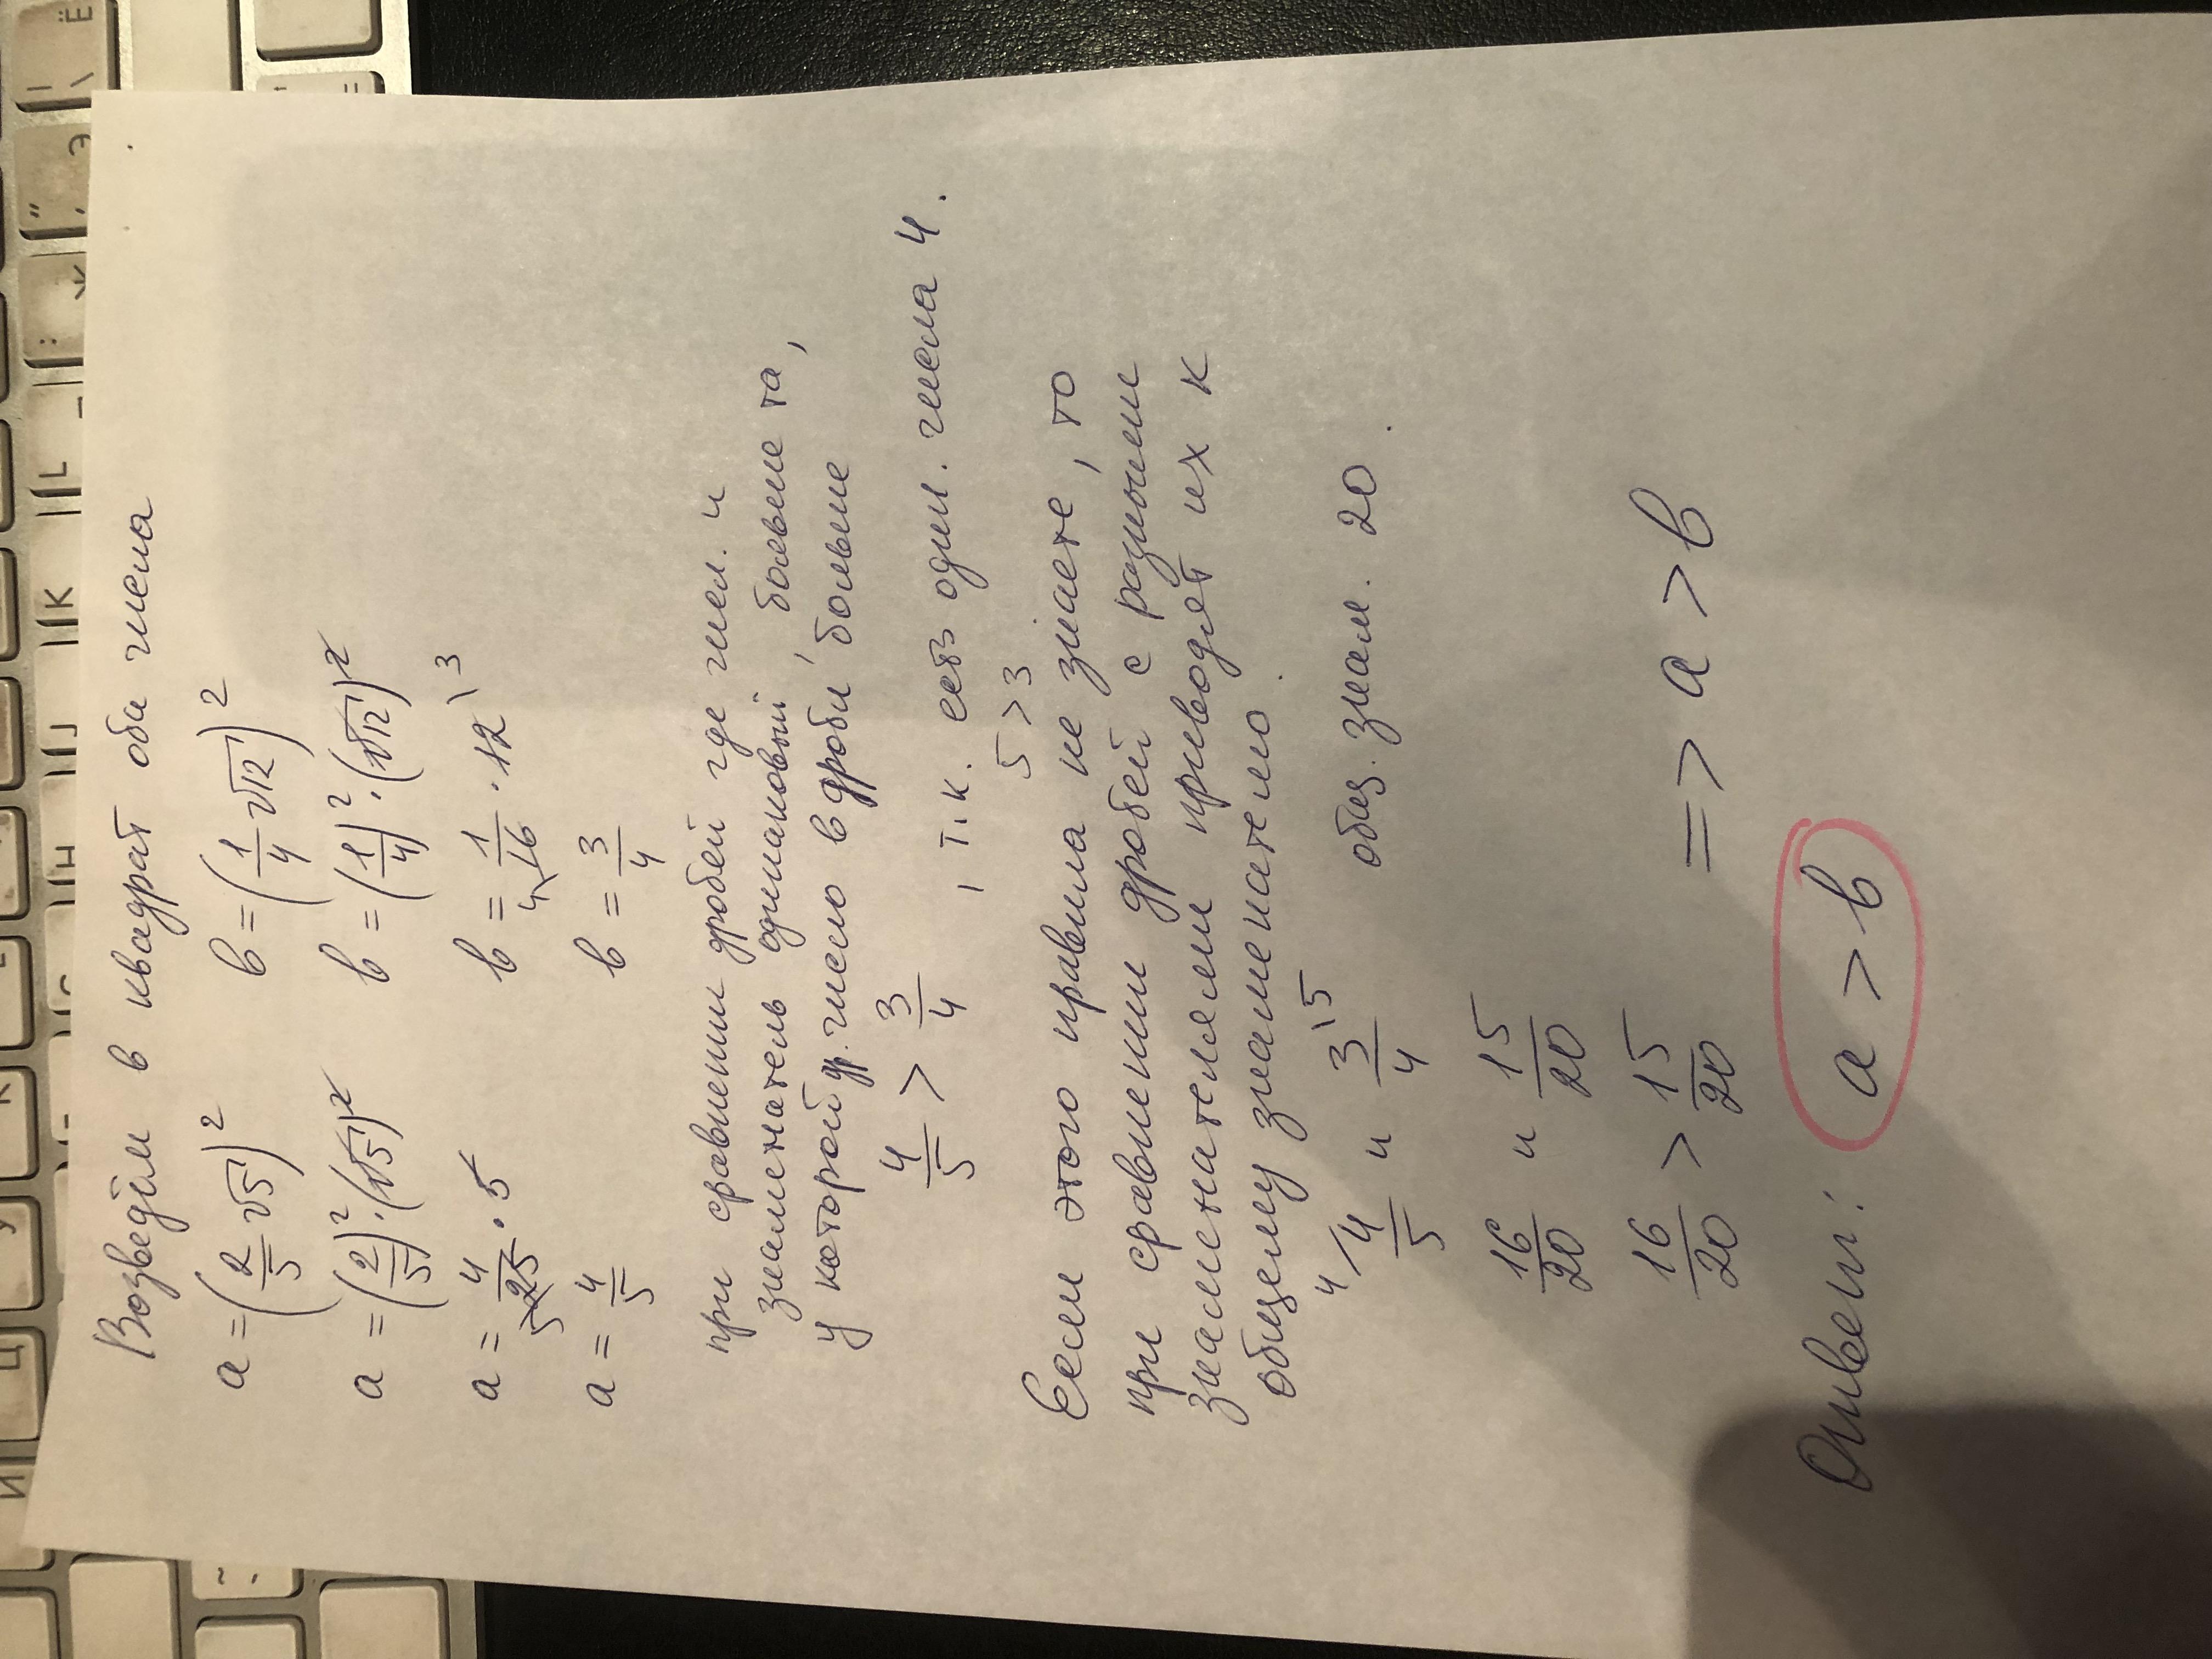 Возведём в квадрат оба числа
a = (2/5 √5)² в = (1/4 √12)²
a = (2/5)² · (√5)² в = (1/4)² · (√12)²
a = 4/25 · 5 5 в = 1/16 · 12 4 3
a = 4/5 в = 3/4
при сравнении дробей где числ. и
знаменатель одинаковый, больше та,
у которой др. число в дроби больше
4/5 > 3/4 , т.к. есть один. числа 4.
5 > 3
Если этого правила не знаете, то
при сравнении дробей с разными
знаменателями приводят их к
общему знаменателю.
4\ 4/5 и 3/4 \5 общ. знам. 20.
16/20 и 15/20
16/20 > 15/20 => a > в
Ответ: a > в
И
Ц
У
К
Е
П
Н
J
K
L
Ж
Э
Ё